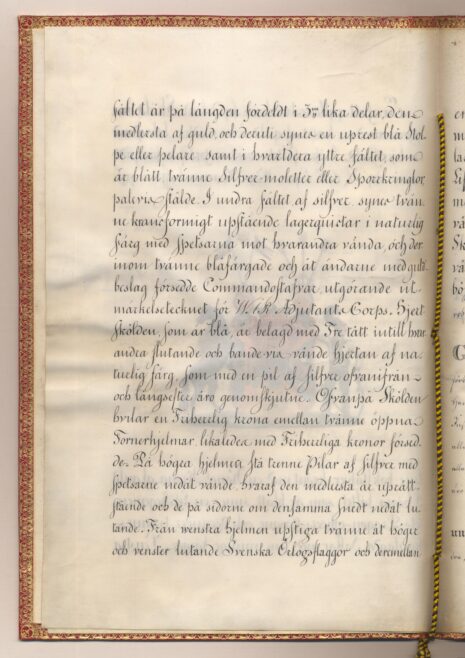 fältet är på längden fördeldt i 3ne lika delar, den
medlersta af guld, och deruti synes en uprest blå Stol-
pe eller pelare samt i hvartdera yttre fältet, som
är blått tvänne Silfver moletter eller Sporrkringlor
palevis stälde. I undra fältet af silfver synes tvän-
ne kransformigt upstående lagerquistar i naturlig
färg med spetsarna mot hvarandra vända, och der-
inom tvänne blåfärgade och åt ändarne med guld-
beslag försedde Commandostafvar, utgörande ut-
märkelsetecknet för Adjutants-Corps. Hjert
skölden, som är blå, är belagd med Tre tätt intill hvar
andra slutande och bandevis vände hjertan af na-
turlig färg som med en pil af silfver ofvanifrån
och långsefter äro genomskjutne. Ofvanpå Skölden
hvilar en Friherrlig krona emellan tvänne öppna
Tornerhjelmar, likaledes med Friherrliga kronor försed-
de. På högra hjelmen stå trenne Pilar af silfver med
spetsarne nedåt vände, hvaraf den medlersta är uprätt-
stående och de på sidorne om densamma snedt nedåt lu-
tande. Från wenstra hjelmen upstiga tvänne åt höger
och venster lutande Svenska Örlogsflaggor och deremellan